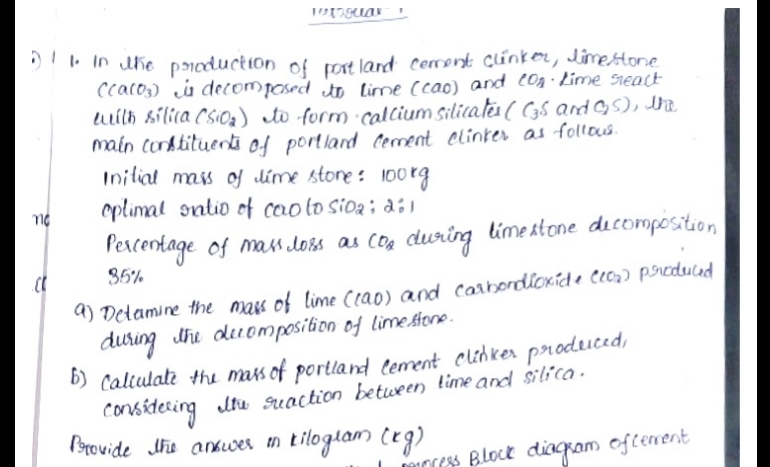 Tutorial - 1
1. In the production of portland cement clinker, limestone
(CaCO3) is decomposed to lime (CaO) and CO2. Lime react
with silica (SiO2) to form calcium silicates (C3S and C2S), the
main constituents of portland cement clinker as follows.
Initial mass of lime stone: 100kg
optimal ratio of CaO to SiO2; 2:1
Percentage of mass loss as CO2 during limestone decomposition
35%
a) Detamine the mass of lime (CaO) and carbondioxide (CO2) produced
during the decomposition of limestone.
b) Calculate the mass of portland cement clinker produced,
considering the reaction between lime and silica.
Provide the answer in kilogram (kg)
process Block diagram of cement